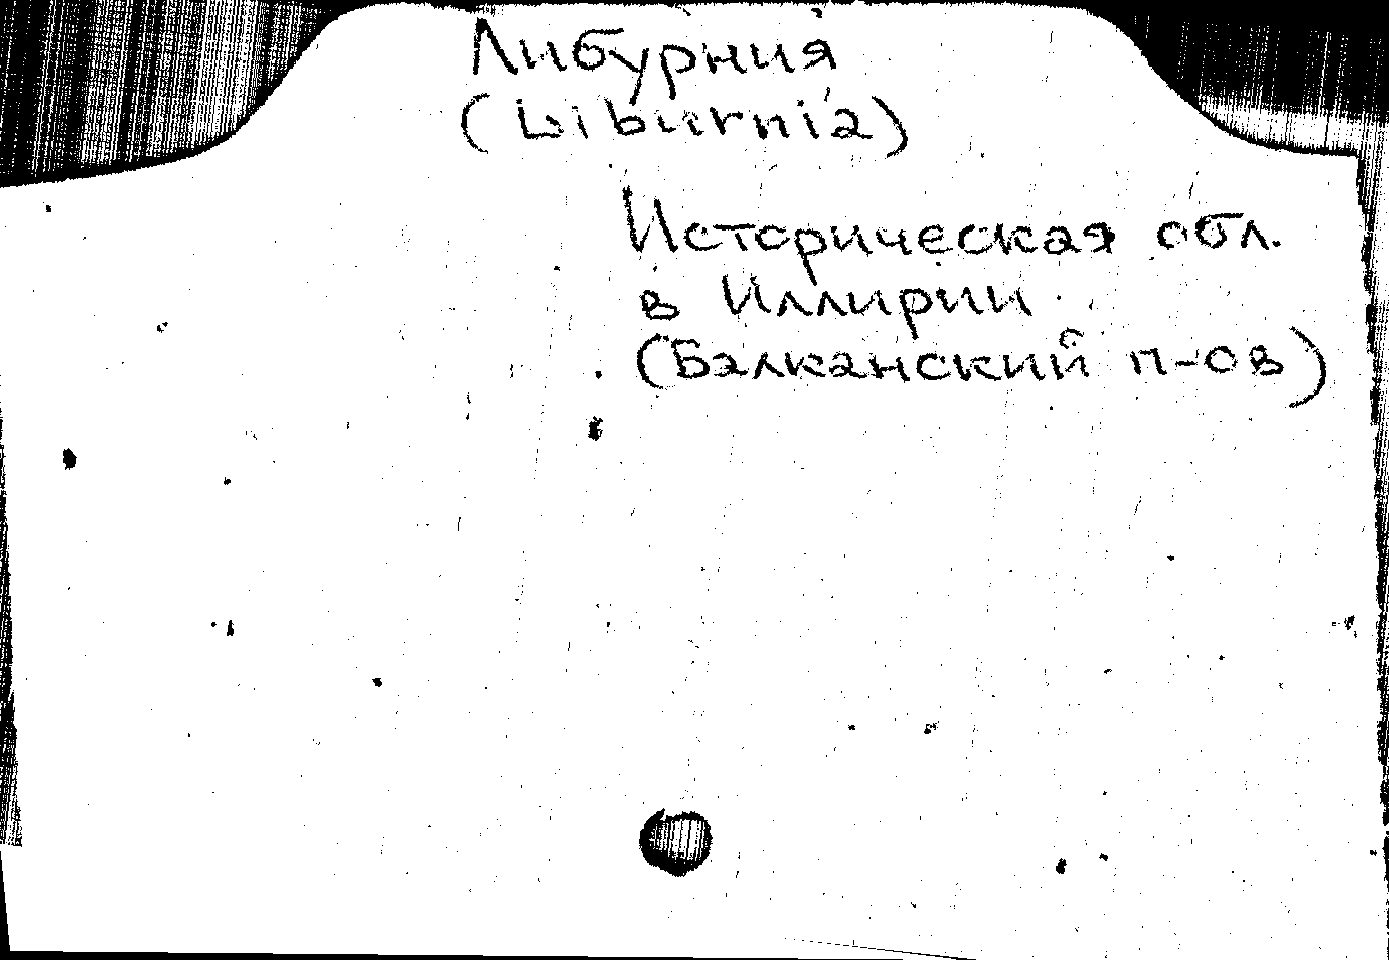 Либурния
(Liburnia)
Историческая обл.
в Иллирии
(Балканский п-ов)